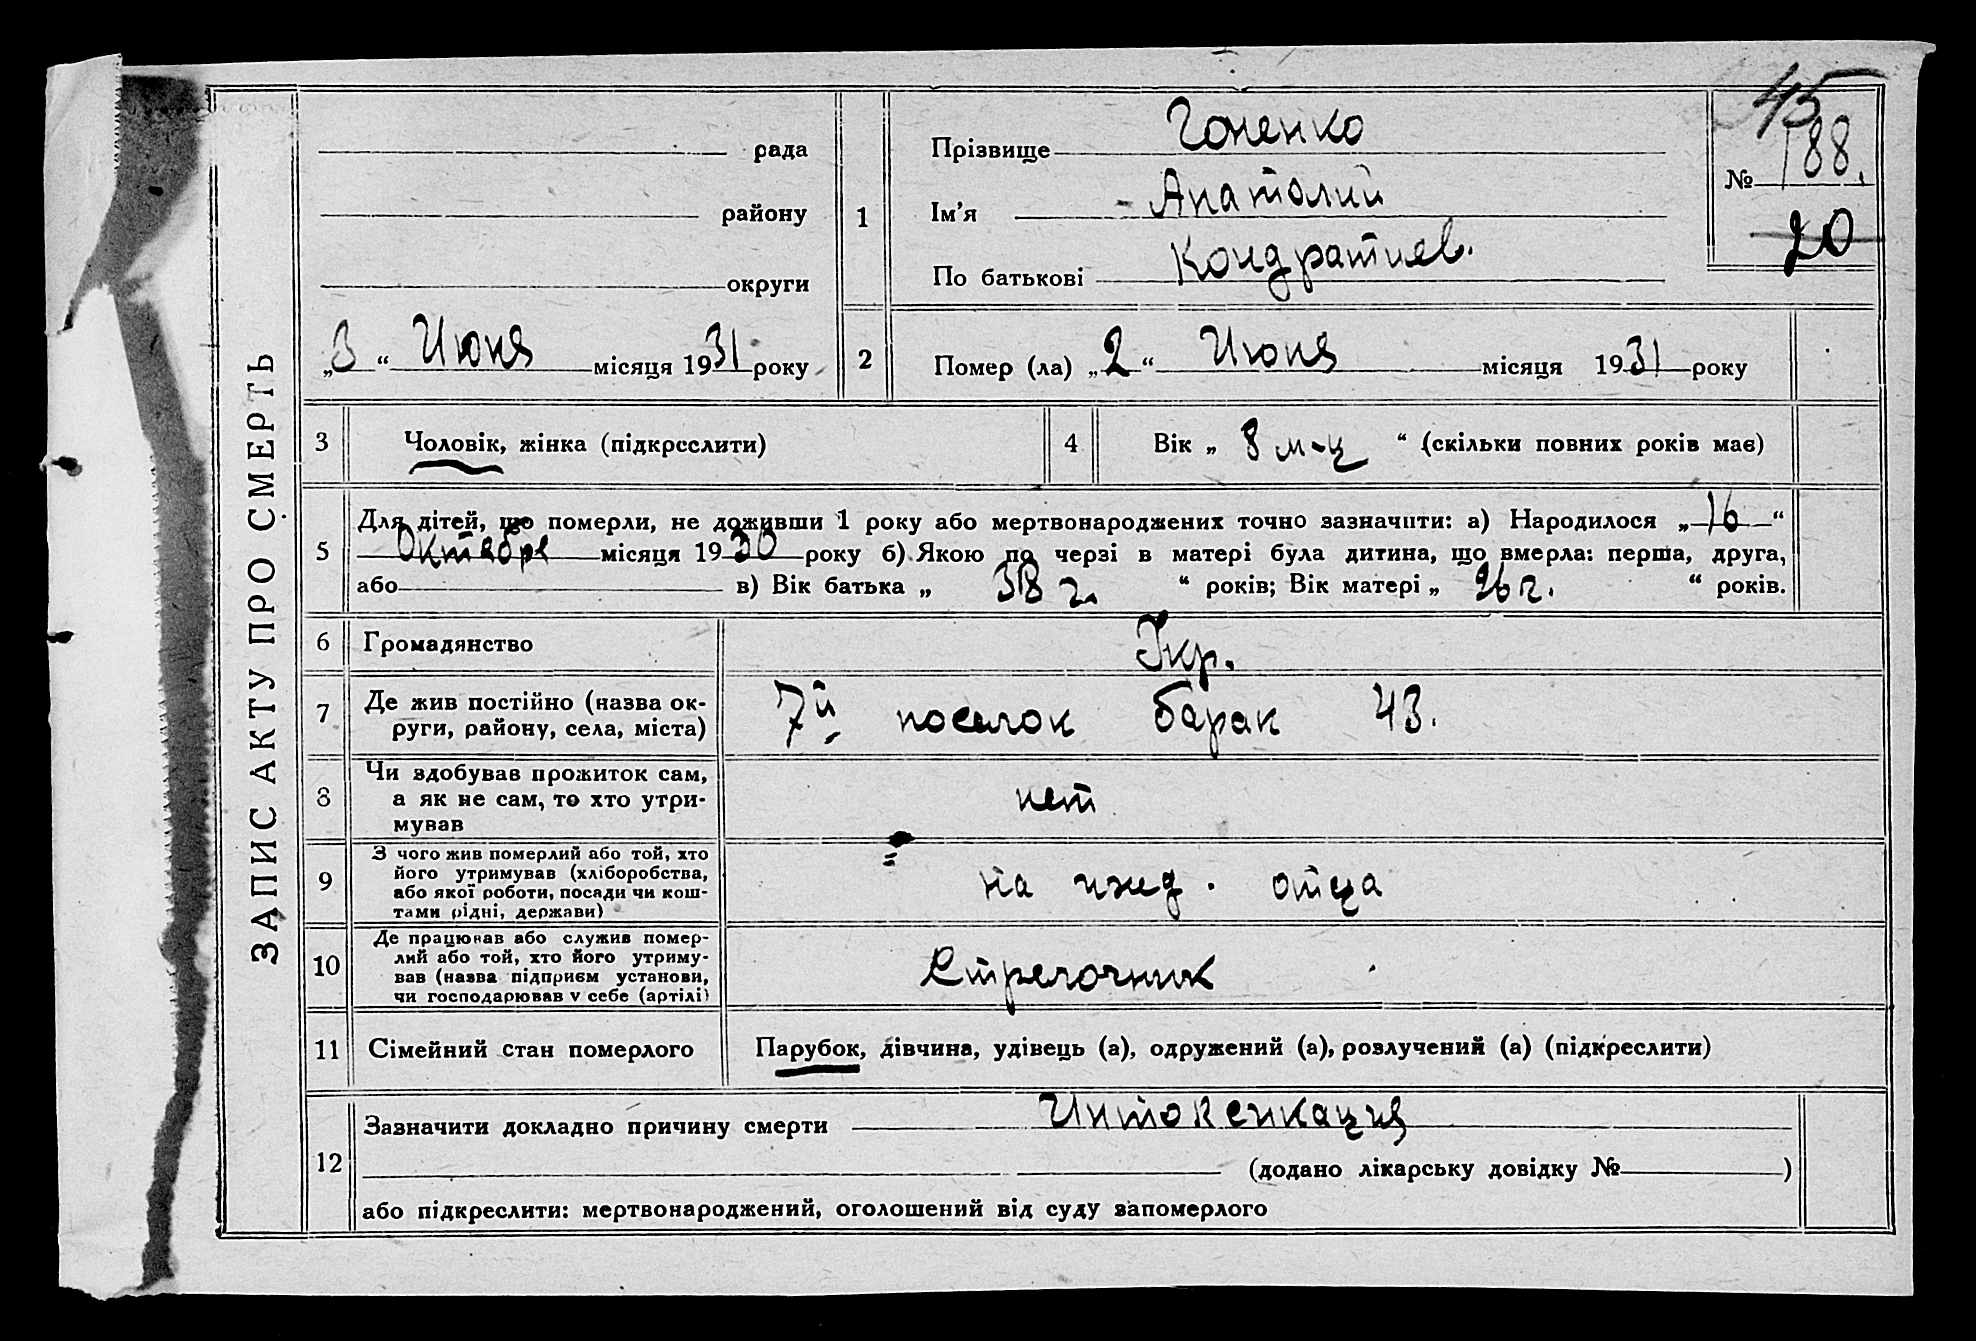 45
ЗАПИС АКТУ ПРО СМЕРТЬ
рада
району
округи
„3“ Июня місяця 1931 року
1
Прізвище Гоненко
Ім’я Анатолий
По батькові Кондратиев.
№ 188.
20
2
Помер (ла) „2“ Июня місяця 1931 року
3 Чоловік, жінка (підкреслити)
4 Вік „8 м-ц“ (скільки повних років має)
5 Для дітей, що померли, не доживши 1 року або мертвонароджених точно зазначити: а) Народилося „16“
Октября місяця 1930 року б) Якою по черзі в матері була дитина, що вмерла: перша, друга,
або в) Вік батька „38 г.“ років; Вік матері „26 г.“ років.
6 Громадянство Укр.
7 Де жив постійно (назва ок-
руги, району, села, міста)
7й поселок барак 43.
8 Чи здобував прожиток сам,
а як не сам, то хто утри-
мував
нет
9 З чого жив померлий або той, хто
його утримував (хліборобства,
або якої роботи, посади чи кош-
тами рідні, держави)
на ижд. отца
10 Де працював або служив помер-
лий або той, хто його утриму-
вав (назва підприєм установи,
чи господарював у себе (артілі)
Стрелочник
11 Сімейний стан померлого Парубок, дівчина, удівець (а), одружений (а), розлучений (а) (підкреслити)
12 Зазначити докладно причину смерти Интоксикация
(додано лікарську довідку № )
або підкреслити: мертвонароджений, оголошений від суду запомерлого